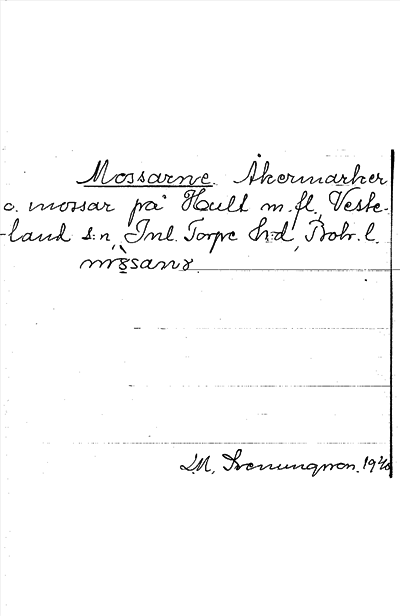 Mossarne. Åkermarker
o. mossar på Hult m. fl., Veste-
-land s:n, Inl. Torpe hd, Boh. l.
L.M. Svenungsson. 19